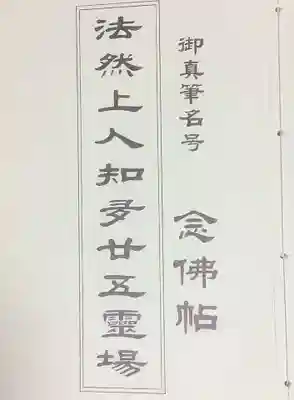 御真筆名号
念佛帖
法然上人知多廿五靈場